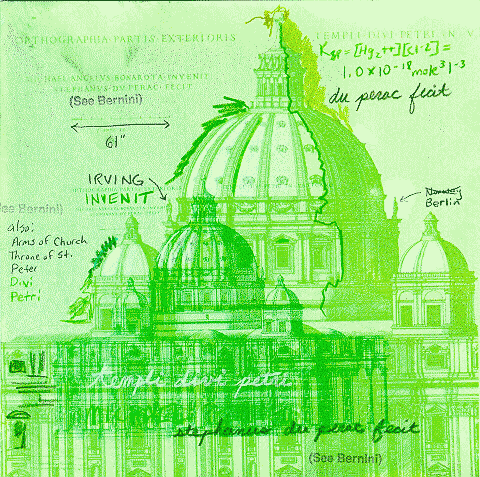 ORTHOGRAPHIA PARTIS EXTERIORIS
TEMPLI DIVI PETRI IN V
MICHAEL ANGELVS BONAROTA INVENIT
STEPHANVS DV PERAC FECIT
(See Bernini)
61"
Ksp = [Hg2++][Cl-]2 =
1.0 x 10-18 mole3 l-3
du perac fecit
IRVING
INVENIT
ORTHOGRAPHIA PARTIS EXTERIORIS
See Bernini)
Norway
Berlin
also:
Arms of Church
Throne of St.
Peter
Divi
Petri
templi divi petri
stephanus du perac fecit
(See Bernini)